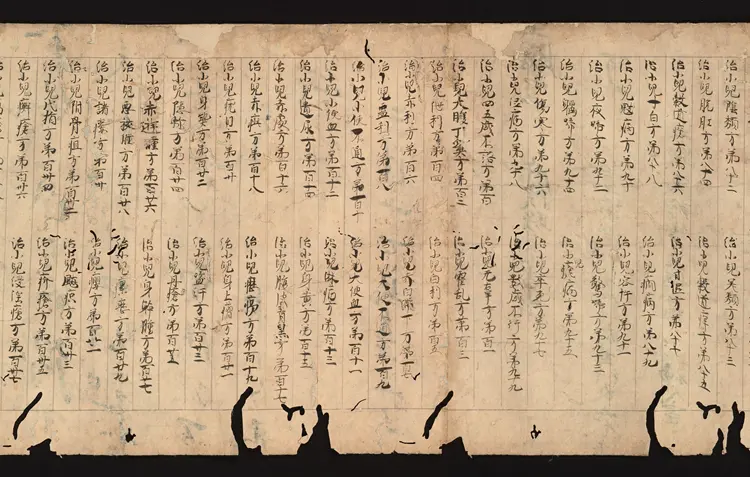 治小兒陰頹方第八十二
治小兒差頹方第八十三
治小兒脫肛方第八十四
治小兒穀道痒方第八十五
治小兒穀道瘡方第八十六
治小兒寸白方第八十八
治小兒癇病方第八十九
治小兒魃病方第九十
治小兒客忤方第九十一
治小兒夜啼方第九十二
治小兒驚啼方第九十三
治小兒瘧病方第九十五
治小兒傷寒方第九十六
治小兒卒死方第九十七
治小兒注病方第九十八
治小兒數歲不行方第九十九
治小兒四五歲不語方第百
治小兒无辜方第百一
治小兒大腹丁奚方第百二
治小兒霍乱方第百三
治小兒泄利方第百四
治小兒白利方第百五
治小兒赤利方第百六
治小兒蠱利方第百八
治小兒大便不通方第百九
治小兒小便不通方第百十
治小兒大便血方第百十一
治小兒小便血方第百十二
治小兒淋病方第百十三
治小兒遺尿方第百十四
治小兒身黃方第百十五
治小兒方第百十六
治小兒方第百十七
治小兒赤疵方第百十八
治小兒方第百十九
治小兒疣目方第百廿
治小兒身上瘡方第百廿一
治小兒身方第百廿二
治小兒盜汗方第百廿三
治小兒隱軫方第百廿四
治小兒丹瘡方第百廿五
治小兒赤遊腫方第百廿六
治小兒身腫方第百廿七
治小兒惡核腫方第百廿八
治小兒方第百廿九
治小兒諸瘻方第百卅
治小兒方第百卅一
治小兒附骨疽方第百卅二
治小兒瘭疽方第百卅三
治小兒代指方第百卅四
治小兒疥瘡方第百卅五
治小兒癬瘡方第百卅六
治小兒浸淫瘡方第百卅七